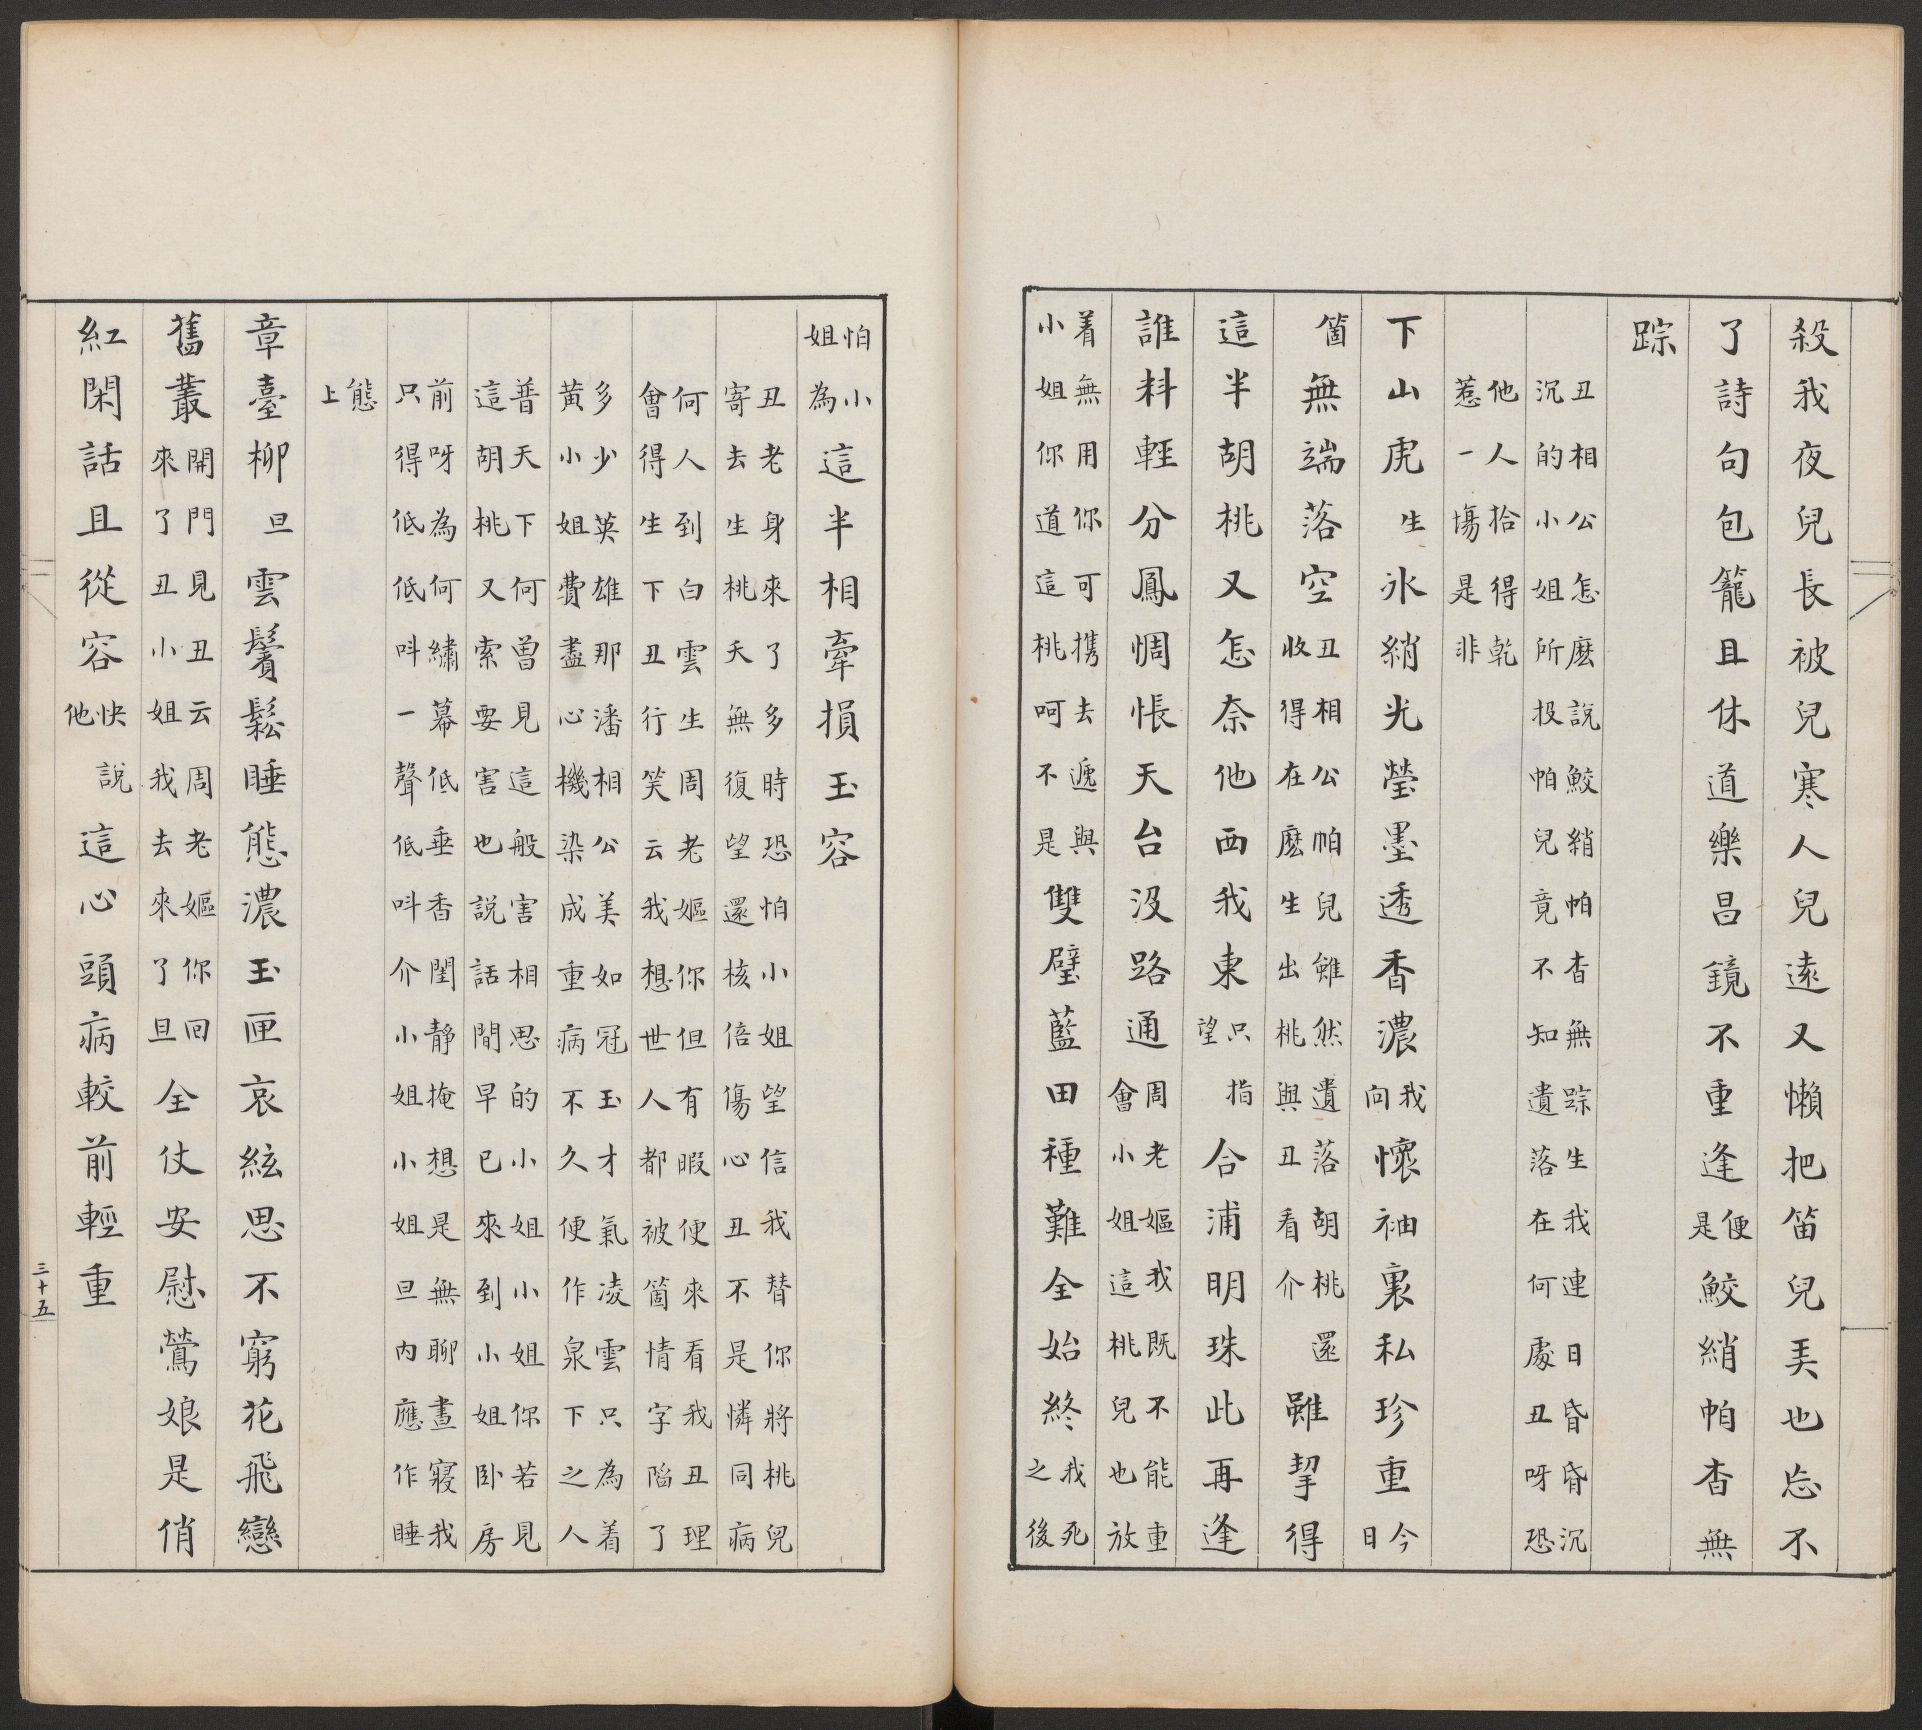 殺我夜兒長被兒寒人兒遠又懶把笛兒美也忘不
了詩句包籠且休道樂昌鏡不重逢便是鮫綃帕杳無
踪
丑相公怎麽說鮫綃帕杳無踪生我連日昏昏沉
沉的小姐所投帕兒竟不知遺落在何處丑呀恐
他人拾得乾
惹一塲是非
下山虎生氷綃光瑩墨透香濃我向懷袖裏私珍重今日
箇無端落空丑相公帕兒雖然遺落胡桃收得在麽生出桃與丑看介還雖挐得
這半胡桃又怎奈他西我東只望指合浦明珠此再逢
誰料輕分鳳惆悵天台沒路通周老嫗我既不能重會小姐這桃兒也放
着無用你可携去遞與小姐你道這桃呵不是雙璧藍田種難全始終我死之後
怕小姐為這半相牽損玉容
丑老身來了多時恐怕小姐望信我替你將桃兒
寄去生桃夭無復望還核倍傷心丑不是憐同病
何人到白雲生周老嫗你但有暇便來看我丑理
會得生下丑行笑云我想世人都被箇情字陷了
多少英雄那潘相公美如冠玉才氣凌雲只為着
黃小姐費盡心機染成重病不久便作泉下之人
普天下何曽見這般害相思的小姐小姐你若見
這胡桃又索要害也說話間早已來到小姐卧房
前呀為何繡幕低垂香閨靜掩想是無聊晝寢我
只得低低呌一聲低呌介小姐小姐旦内應作睡
態上
章臺柳旦雲鬢鬆睡態濃玉匣哀絃思不窮花飛戀
舊叢開門見丑云周老嫗你回來了丑小姐我去來了旦全仗安慰鶯娘是俏
紅閑話且從容快他說這心頭病較前輕重
三十五